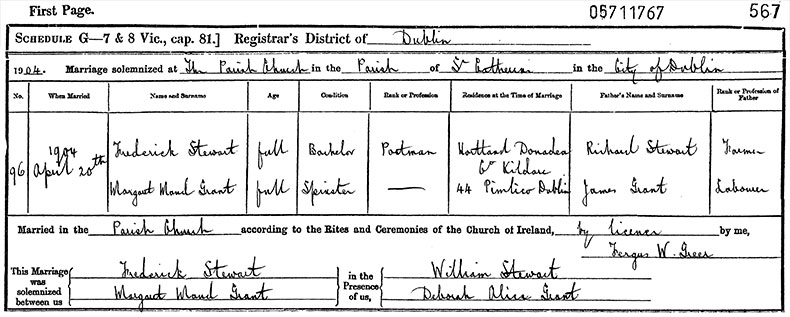 First Page. 05711767 567
SCHEDULE G—7 & 8 Vic., cap. 81.] Registrar's District of Dublin
1904. Marriage solemnized at The Parish Church in the Parish of St Catherine in the City of Dublin
No. When Married Name and Surname Age Condition Rank or Profession Residence at the Time of Marriage Father's Name and Surname Rank or Profession of Father
96 1904 April 20th Frederick Stewart full Bachelor Postman Hortland Donadea Co Kildare Richard Stewart Farmer
Margaret Maud Grant full Spinster — 44 Pimlico Dublin James Grant Labourer
Married in the Parish Church according to the Rites and Ceremonies of the Church of Ireland, by licence by me,
Fergus W. Greer
This Marriage was solemnized between us Frederick Stewart in the Presence of us, William Stewart
Margaret Maud Grant Deborah Alice Grant